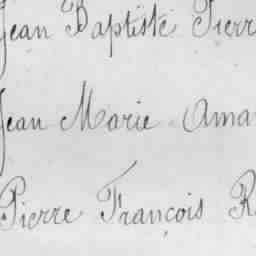 Jean Baptiste Pierr
Jean Marie Ama
Pierre François R